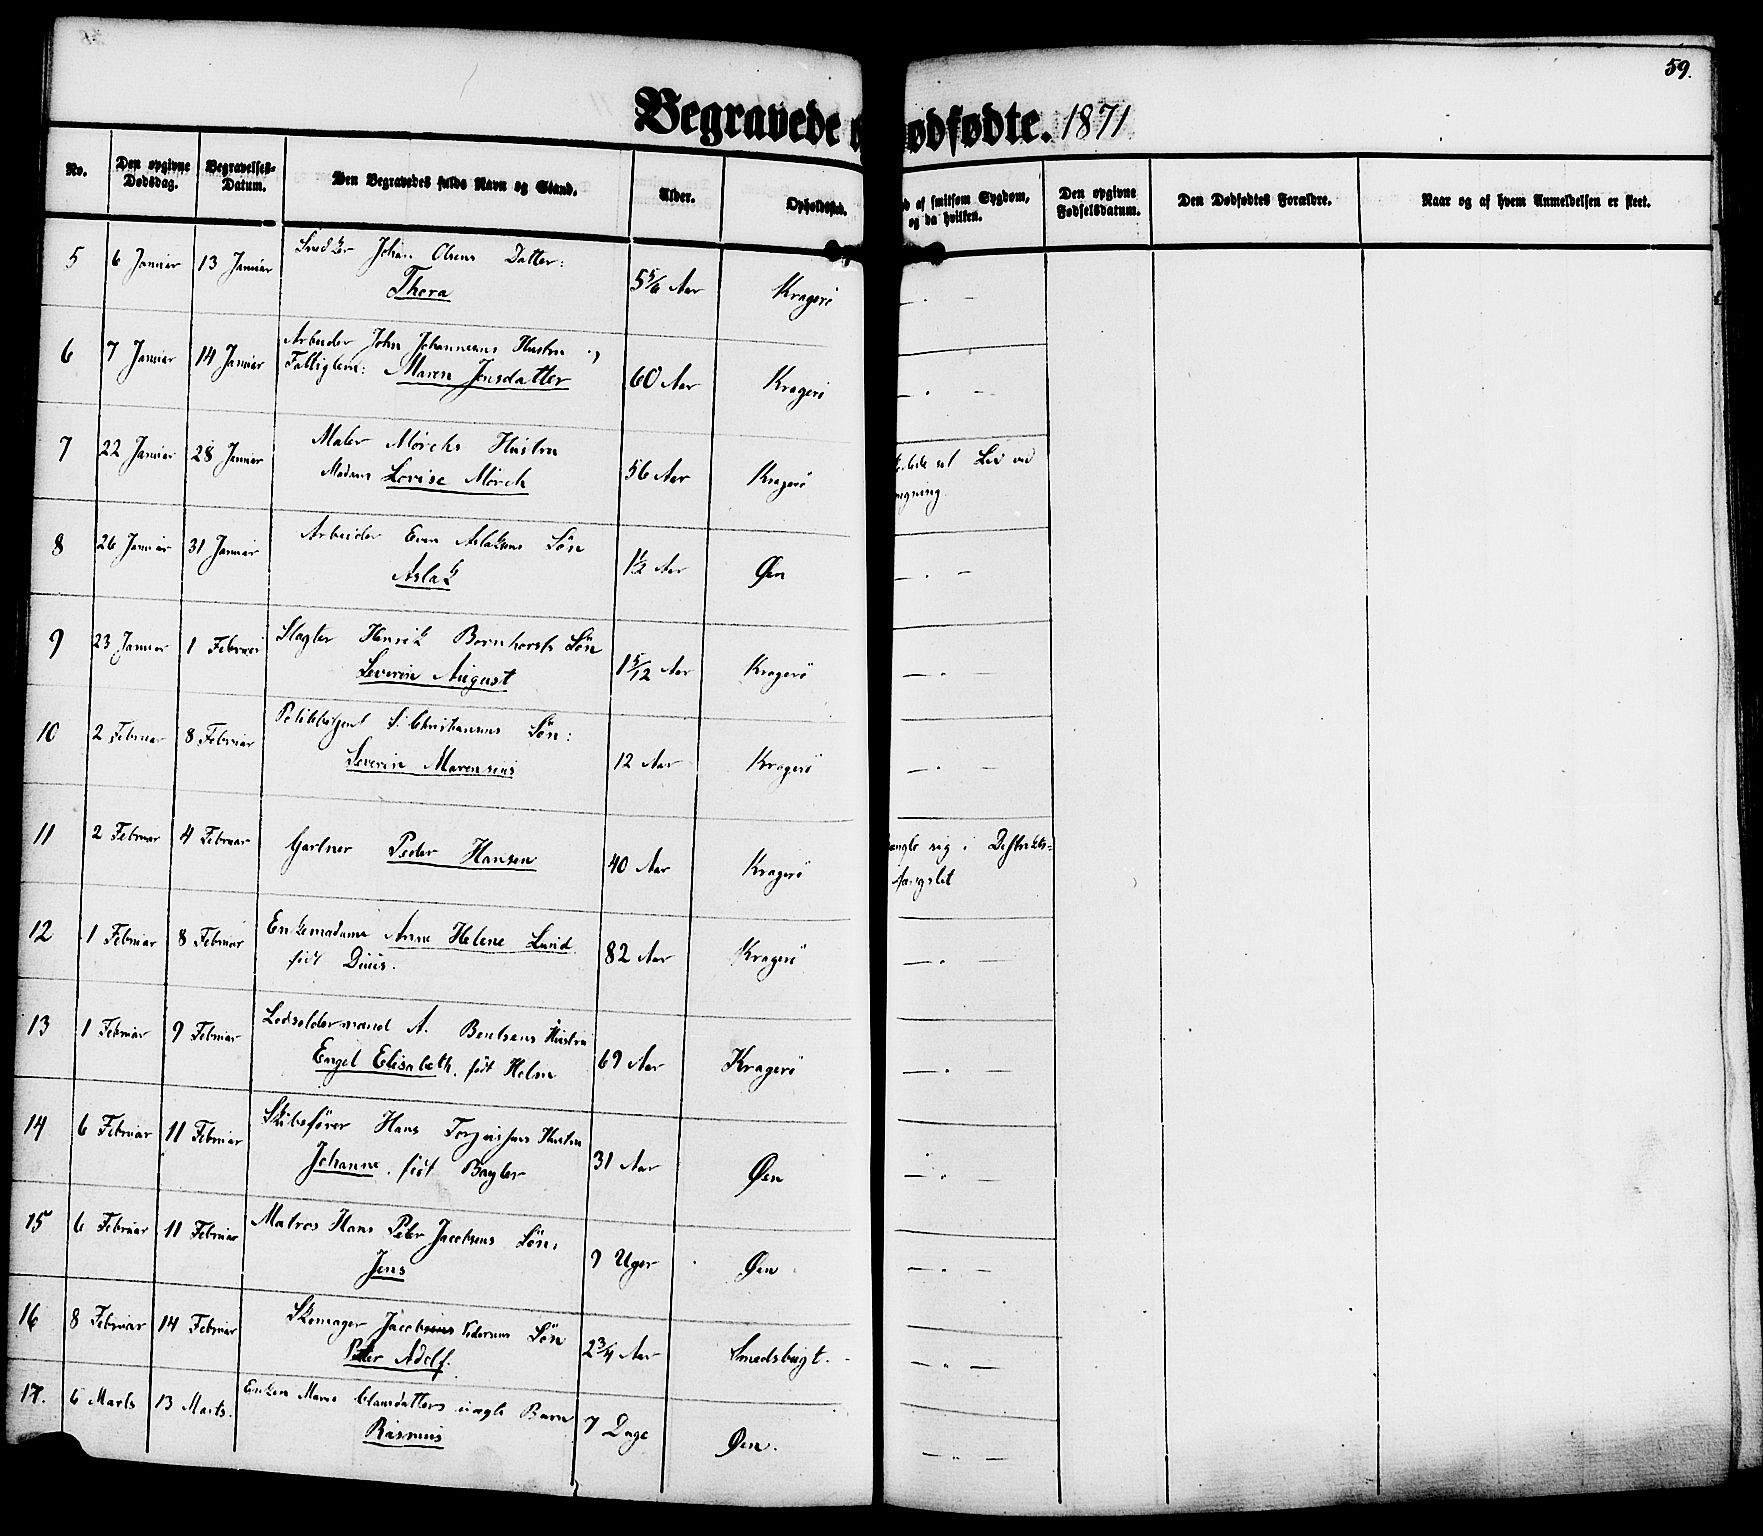 59.
Begravede ødfødte. 1871
No. Den opgivne Dødsdag. Begravelses-Datum. Den Begravedes fulde Navn og Stand. Alder. Opholdssted. af smitsom Sygdom, og da hvilken. Den opgivne Fødselsdatum. Den Dødfødtes Forældre. Naar og af hvem Anmeldelsen er skeet.
5 6 Januar 13 Januar Snedker Johan Olsens Datter:
Thora 5 5/6 Aar Kragerö — " —
6 7 Januar 14 Januar Arbeider John Johannesens Hustru
Fattiglem: Maren Jensdatter 60 Aar Kragerö — " —
7 22 Januar 28 Januar Maler Mörchs Hustru
Madam Lovise Mörch 56 Aar Kragerö sit Liv ved
8 26 Januar 31 Januar Arbeider Even Aslaksens Sön
Aslak 1 1/2 Aar Øen — " —
9 23 Januar 1 Februar Slagter Henrik Bornhorsts Sön
Severin August 1 5/12 Aar Kragerö — " —
10 2 Februar 8 Februar Politibetjent S. Christiansens Sön:
Severin Marensius 12 Aar Kragerö — " —
11 2 Februar 4 Februar Gartner Peder Hansen 40 Aar Kragerö ængte sig i Distrikts-
fængslet
12 1 Februar 8 Februar Enkemadame Anne Helene Lund
födt Duus. 82 Aar Kragerö — " —
13 1 Februar 9 Februar Lodsoldermand A. Bentsens Hustru
Engel Elisabeth, födt Holm 69 Aar Kragerö — " —
14 6 Februar 11 Februar Skibsförer Hans Torjusens Hustru
Johanne, födt Bayler 31 Aar Øen — " —
15 6 Februar 11 Februar Matros Hans Peter Jacobsens Sön,
Jens 9 Uger Øen — " —
16 8 Februar 14 Februar Skomager Jacob Pedersens Sön
Peter Adolf. 2 3/4 Aar Smedsbugt. — " —
17. 6 Marts 13 Marts. Enken Maren Clausdatters uægte Barn
Rasmus 7 Dage Øen. — " —